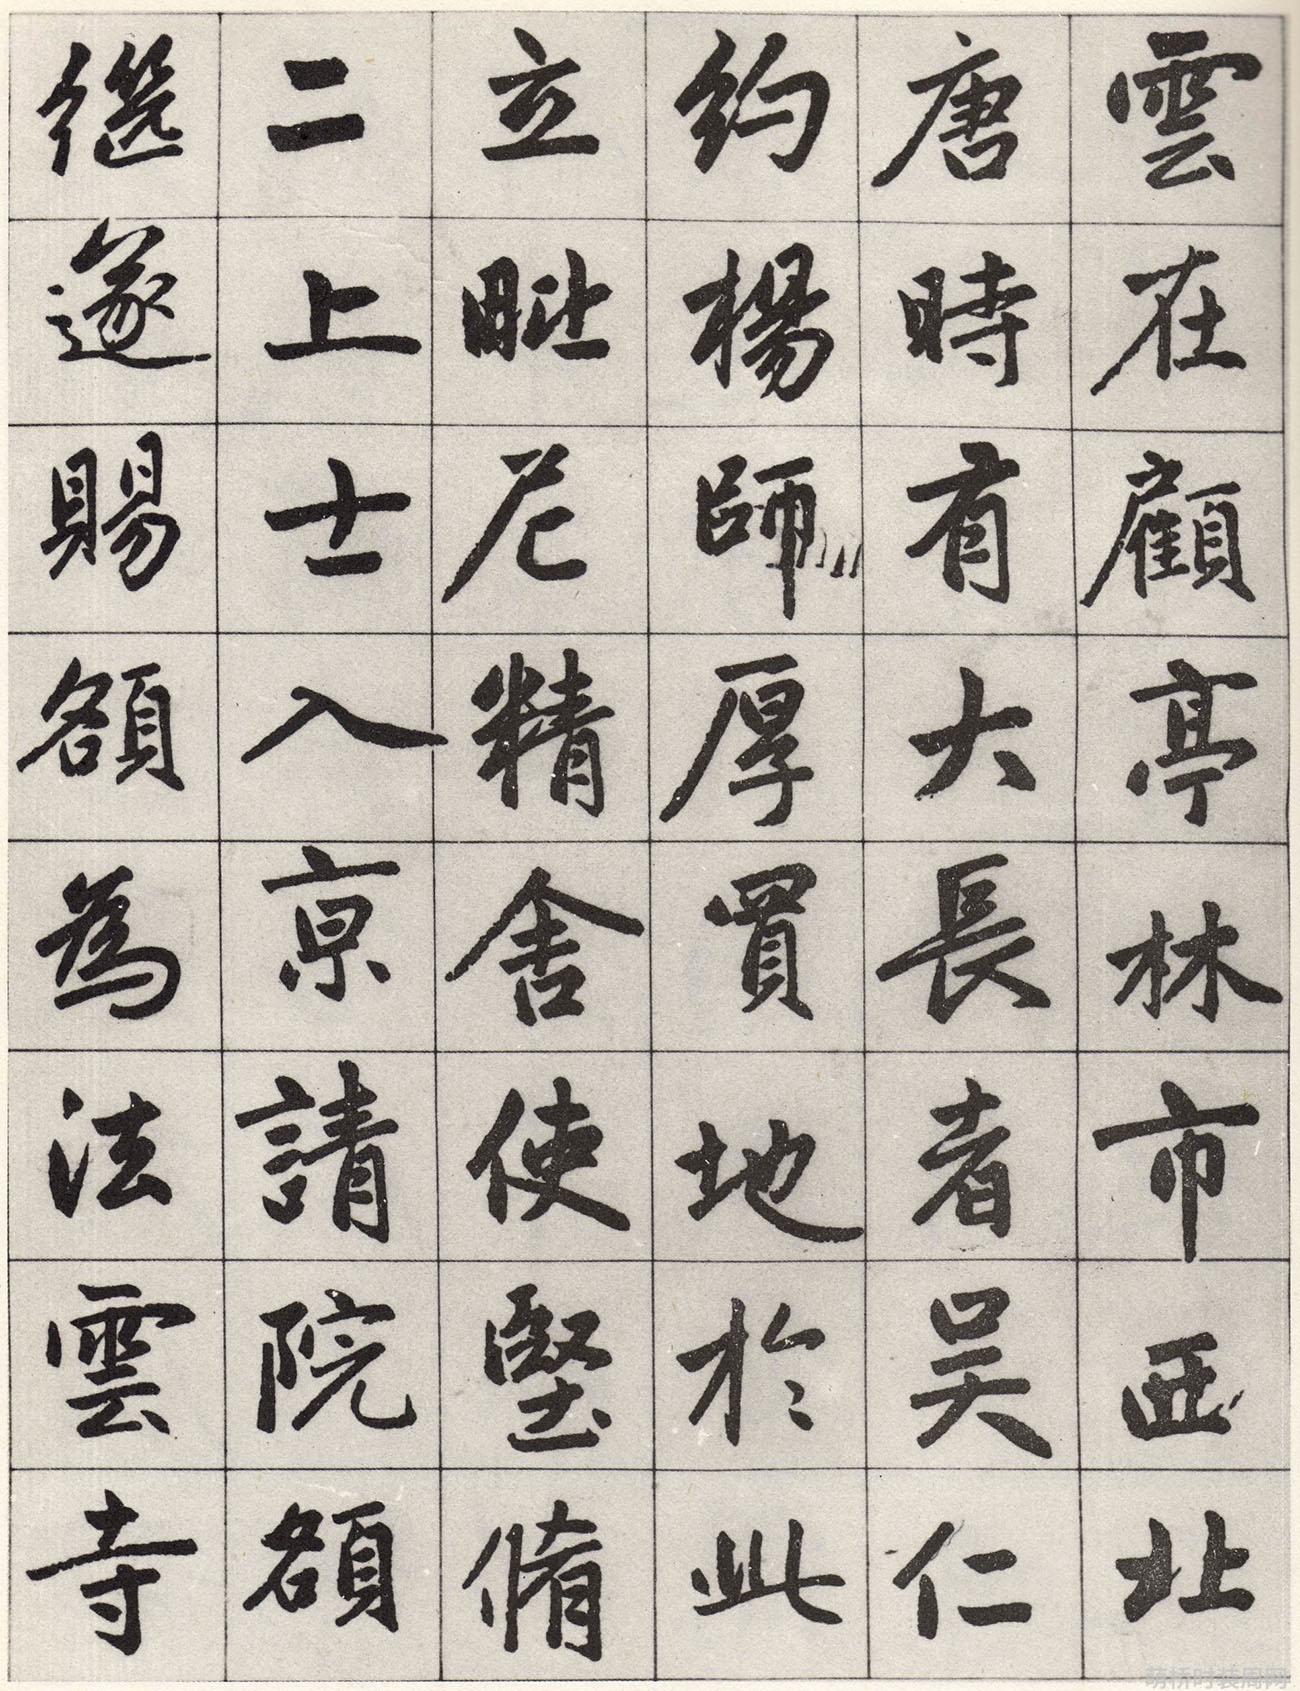 雲在顧亭林市西北
唐時有大長者吳仁
約楊師厚買地於此
立毗尼精舍使堅脩
二上士入亰請院額
繼遂賜額為法雲寺